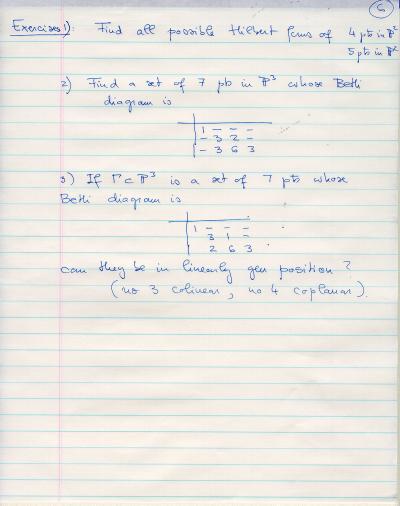 6
Exercises 1): Find all possible Hilbert fcns of 4 pts in P²
5 pts in P²
2) Find a set of 7 pts in P³ whose Betti
diagram is
1 – – –
– 3 2 –
– 3 6 3
3) If Γ ⊂ P³ is a set of 7 pts whose
Betti diagram is
1 – – –
3 1 –
2 6 3
can they be in linearly gen position?
(no 3 colinear, no 4 coplanar).